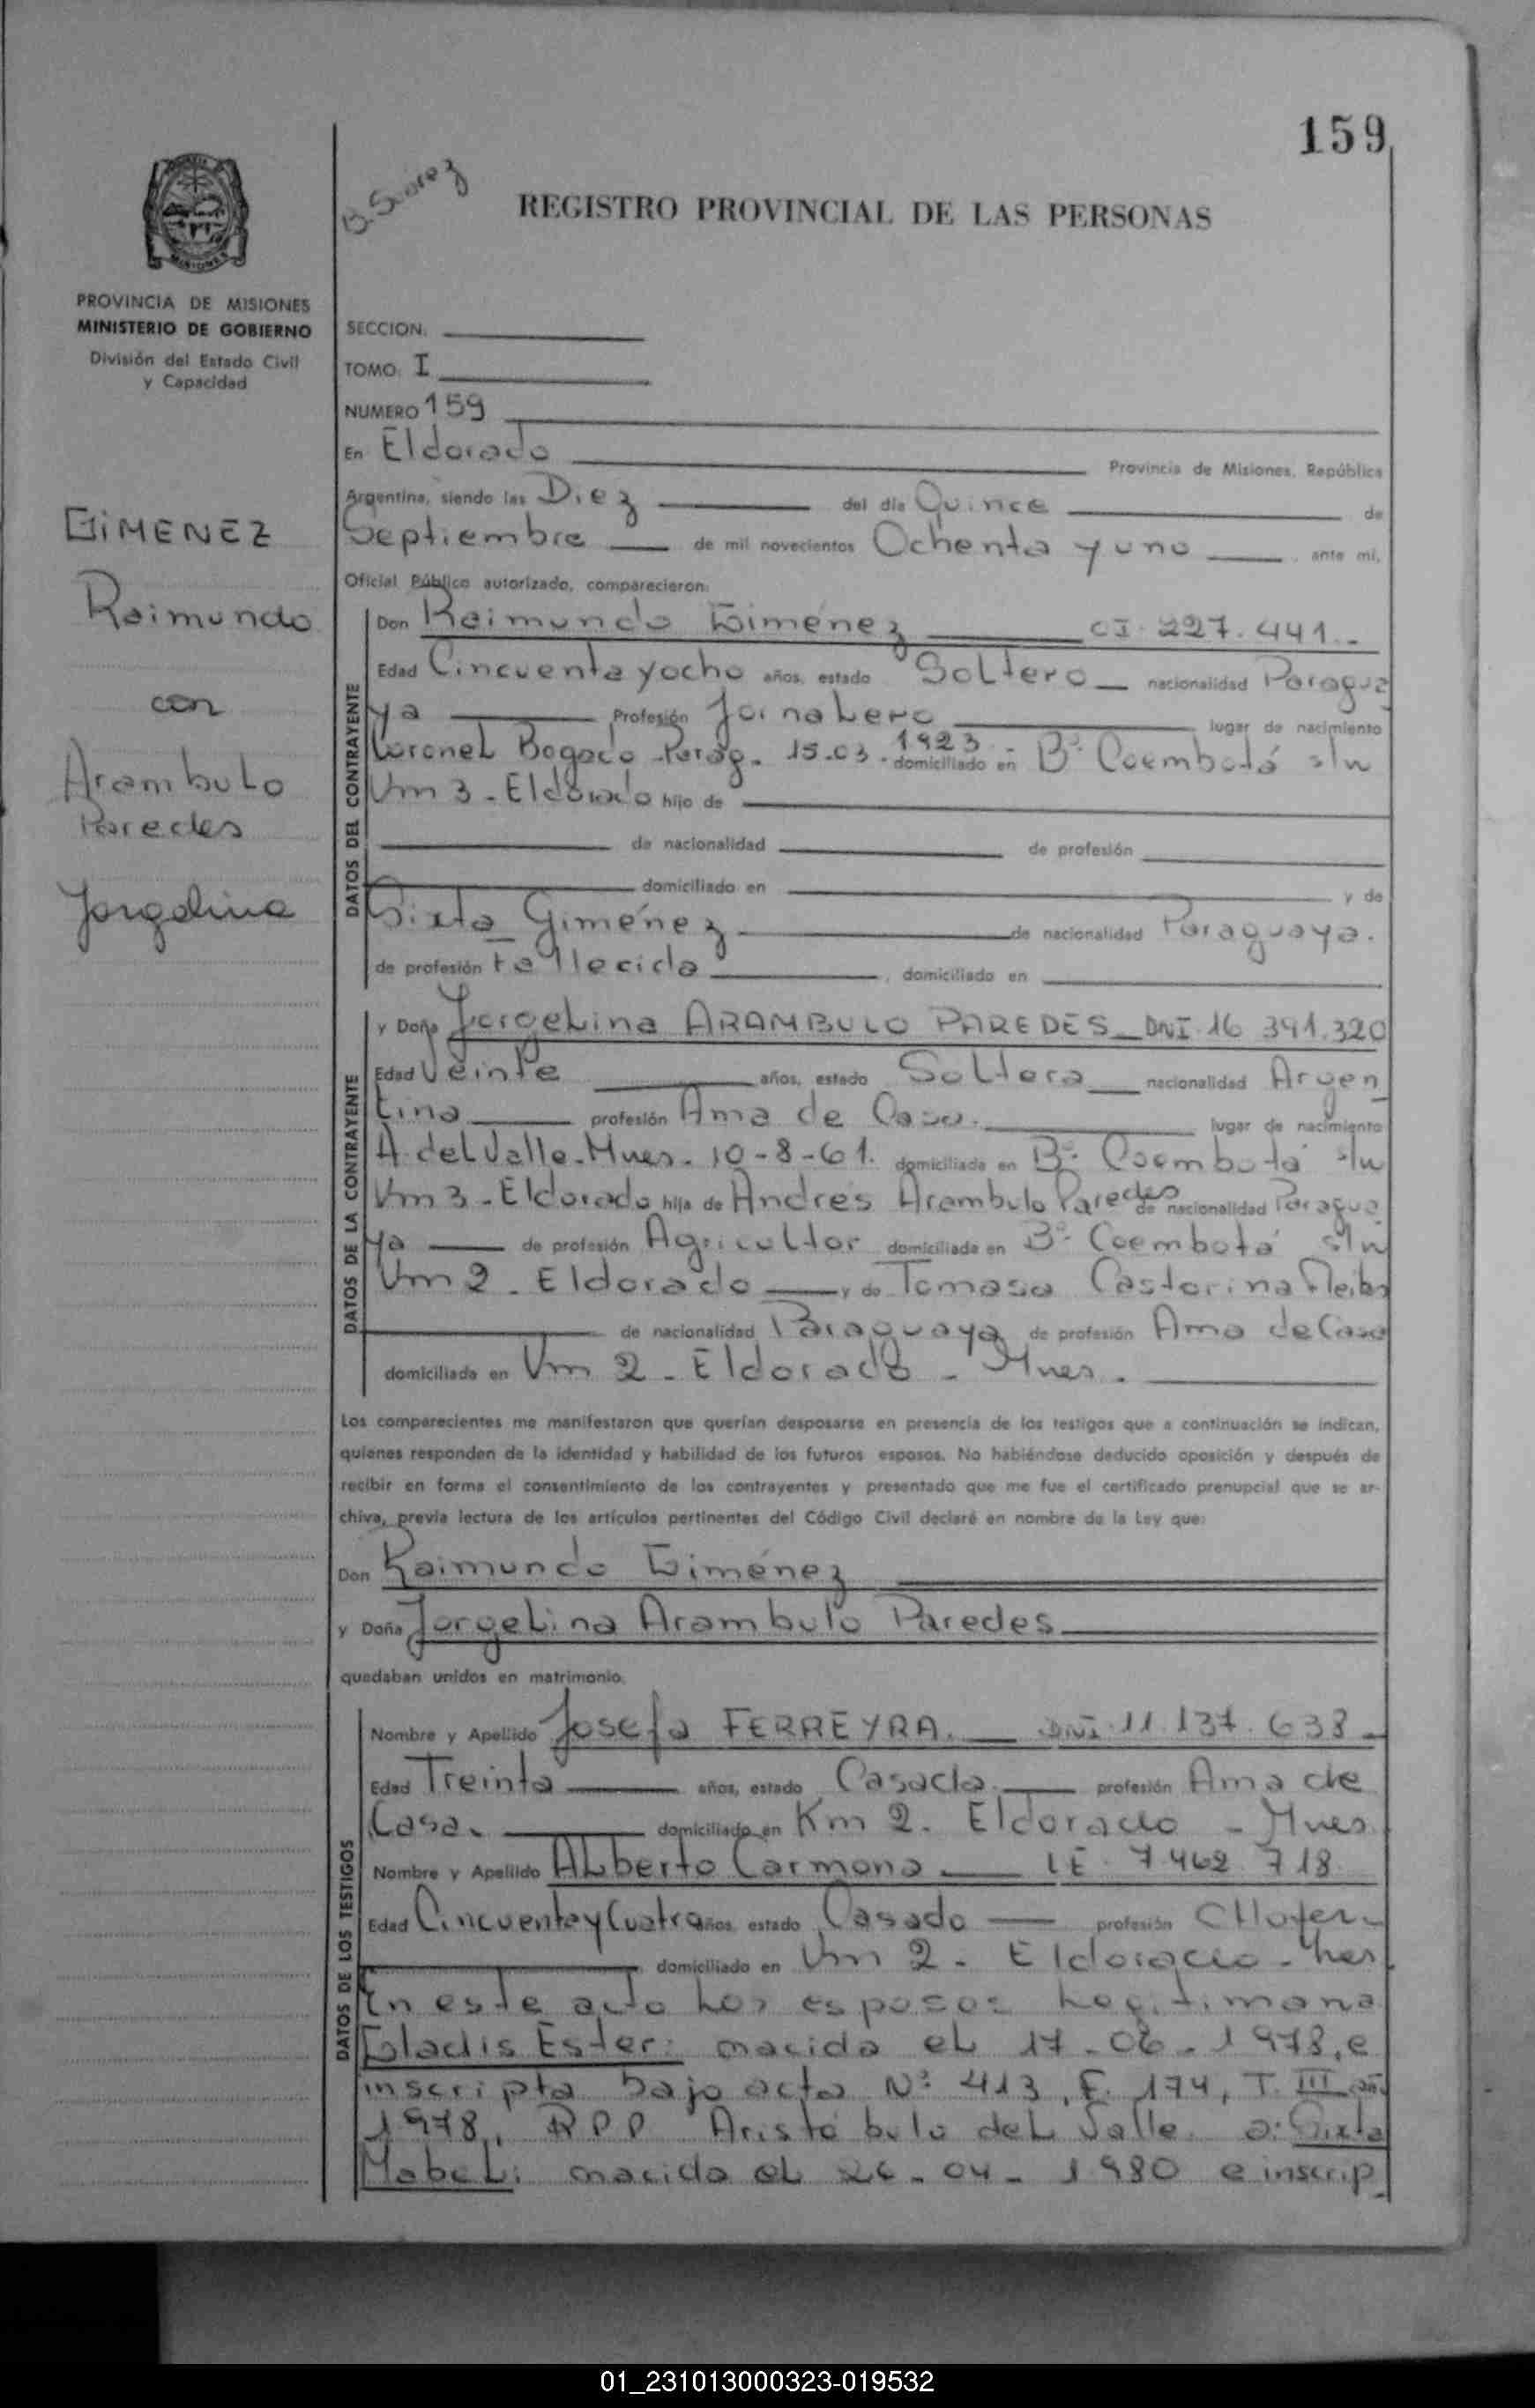 159
B. Suárez
REGISTRO PROVINCIAL DE LAS PERSONAS
MISIONES
PROVINCIA DE MISIONES
MINISTERIO DE GOBIERNO
División del Estado Civil
y Capacidad
GIMENEZ
Raimundo
con
Arambulo
Paredes
Jorgelina
SECCION:
TOMO: I
NUMERO 159
En Eldorado Provincia de Misiones, República
Argentina, siendo las Diez del día Quince de
Septiembre de mil novecientos Ochenta y uno ante mí,
Oficial Público autorizado, comparecieron:
DATOS DEL CONTRAYENTE
Don Raimundo Giménez CI. 227.441.-
Edad Cincuenta y ocho años, estado Soltero nacionalidad Paragua
ya Profesión Jornalero lugar de nacimiento
Coronel Bogado - Parag. 15.03.1923 - domiciliado en Bº Coembotá s/n
Km 3 - Eldorado hijo de
de nacionalidad de profesión
domiciliado en y de
Sixta Giménez de nacionalidad Paraguaya.
de profesión Fallecida, domiciliado en
DATOS DE LA CONTRAYENTE
y Doña Jorgelina ARAMBULO PAREDES DNI 16 391.320
Edad Veinte años, estado Soltera nacionalidad Argen
tina profesión Ama de Casa. lugar de nacimiento
A. del Valle - Mnes. 10-8-61. domiciliada en Bº Coembotá s/n
Km 3 - Eldorado hija de Andrés Arambulo Paredes de nacionalidad Paragua
ya de profesión Agricultor domiciliada en Bº Coembotá s/n
Km 2 - Eldorado y de Tomasa Castorina
de nacionalidad Paraguaya de profesión Ama de Casa
domiciliada en Km 2 - Eldorado - Mnes.
Los comparecientes me manifestaron que querían desposarse en presencia de los testigos que a continuación se indican,
quienes responden de la identidad y habilidad de los futuros esposos. No habiéndose deducido oposición y después de
recibir en forma el consentimiento de los contrayentes y presentado que me fue el certificado prenupcial que se ar-
chiva, previa lectura de los artículos pertinentes del Código Civil declaré en nombre de la Ley que:
Don Raimundo Giménez
y Doña Jorgelina Arambulo Paredes
quedaban unidos en matrimonio.
DATOS DE LOS TESTIGOS
Nombre y Apellido Josefa FERREYRA. DNI 11.137.638
Edad Treinta años, estado Casada. profesión Ama de
Casa. domiciliado en Km 2. Eldorado - Mnes.
Nombre y Apellido Alberto Carmona LE. 7.462.718
Edad Cincuenta y Cuatro años, estado Casado profesión CHofer
domiciliado en Km 2 - Eldorado - Mnes
En este acto los esposos legitiman a
Gladis Ester: nacida el 17-06-1978, e
inscripta bajo acta Nº 413, F. 174, T. III año
1978, RPP Aristóbulo del Valle. a: Sixta
Mabel: nacida el 26-04-1980 e inscrip
01_231013000323-019532